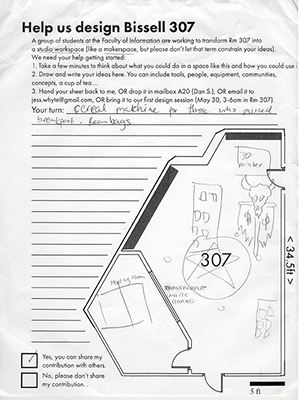 Help us design Bissell 307
A group of students at the Faculty of Information are working to transform Rm 307 into
a studio workspace (like a makerspace, but please don't let that term constrain your ideas).
We need your help getting started:
1. Take a few minutes to think about what you could do in a space like this and how you could use i
2. Draw and write your ideas here. You can include tools, people, equipment, communities,
concepts, a cup of tea...
3. Hand your sheet back to me, OR drop it in mailbox A20 (Dan S.), OR email it to
jess.whyte@gmail.com, OR bring it to our first design session (May 30, 3-6am in Rm 307).
Your turn: Cereal machine for those who missed
breakfast. Beanbags
3D
printer
307
< 34.5ft >
WHITE
BOARD
5 ft
Yes, you can share my
contribution with others.
No, please don't
share my
contribution. .